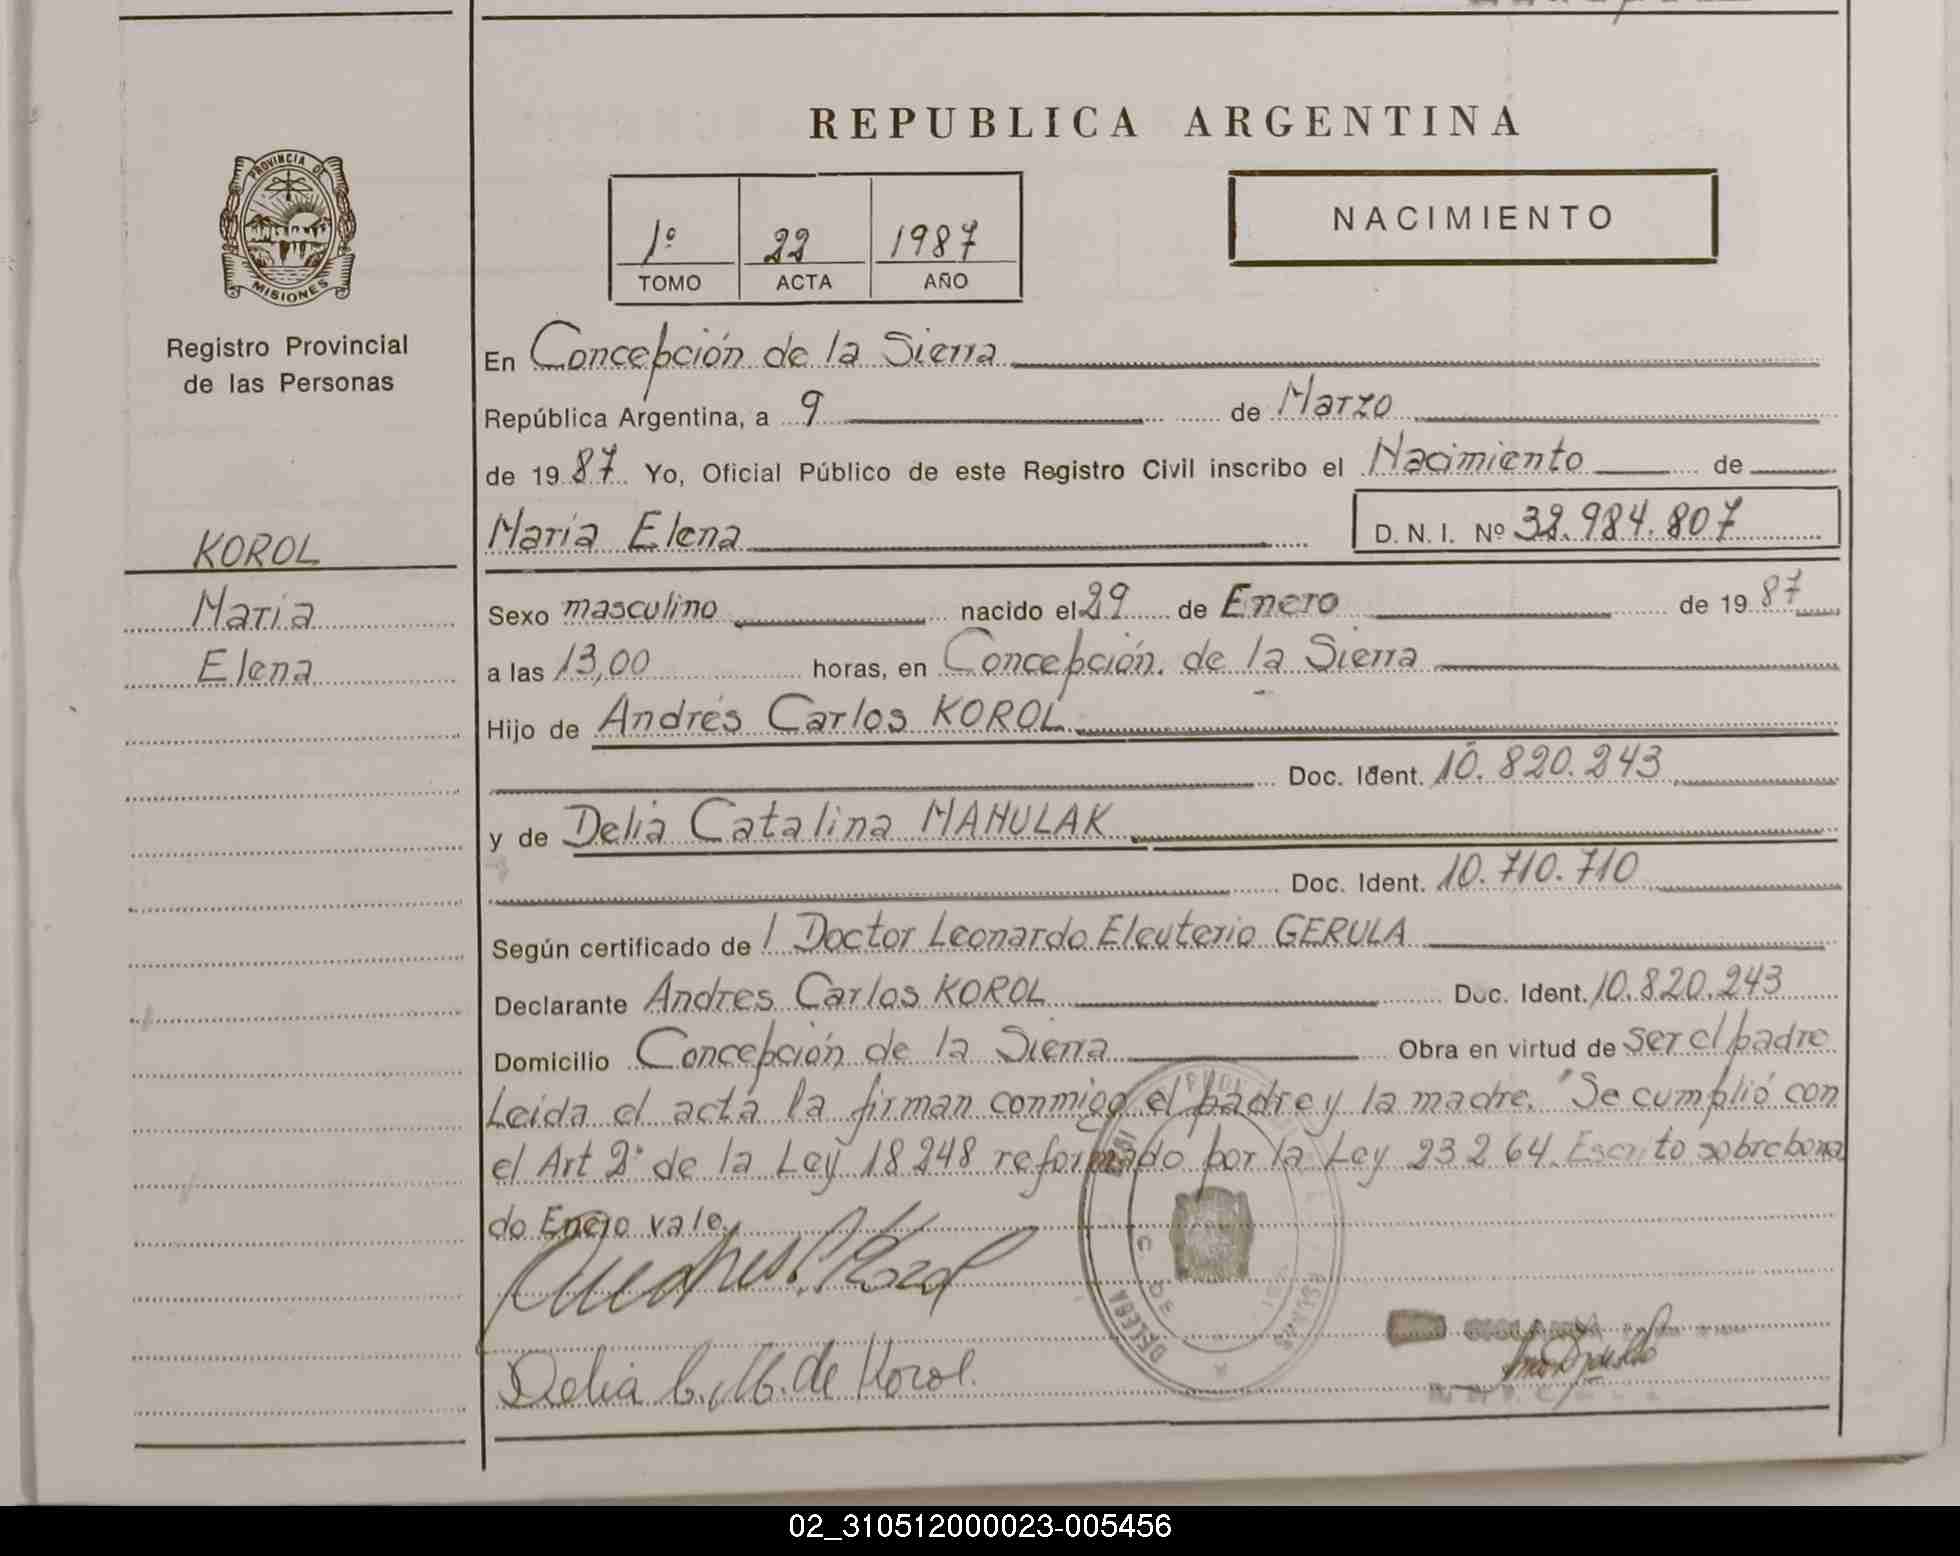 REPUBLICA ARGENTINA
PROVINCIA DE
MISIONES
Registro Provincial
de las Personas
1º 22 1987
TOMO ACTA AÑO
NACIMIENTO
En Concepción de la Sierra
República Argentina, a 9 de Marzo
de 19 87 Yo, Oficial Público de este Registro Civil inscribo el Nacimiento de
Maria Elena D. N. I. Nº 32.984.807
KOROL
Maria
Elena
Sexo masculino nacido el 29 de Enero de 19 87
a las 13,00 horas, en Concepción de la Sierra
Hijo de Andrés Carlos KOROL
Doc. Ident. 10.820.243
y de Delia Catalina MAHULAK
Doc. Ident. 10.710.710
Según certificado de Doctor Leonardo Eleuterio GERULA
Declarante Andres Carlos KOROL Doc. Ident. 10.820.243
Domicilio Concepción de la Sierra Obra en virtud de ser el padre
Leida el acta la firman conmigo el padre y la madre. "Se cumplió con
el Art 2º de la Ley 18248 reformado por la Ley 23264. Escrito sobreborra
do Enero vale.
Andres C. Korol
Delia C. M. de Korol.
02_310512000023-005456